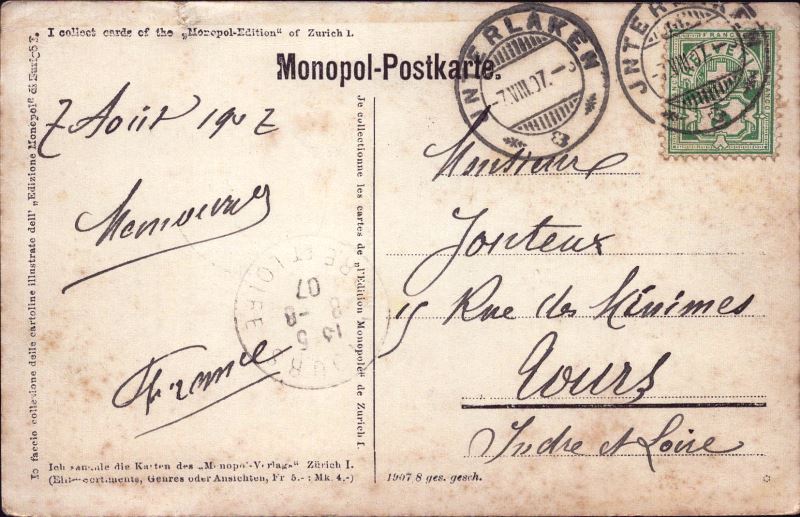 I collect cards of the „Monopol-Edition" of Zurich I.
Monopol-Postkarte.
INTERLAKEN
-7.VIII.07.-
3
INTERLAKEN
VIII.07
3
FRANCO
7 Août 1907
France
Io faccio collezione delle cartoline illustrate dell' „Edizione Monopol" di Zurigo I.
Je collectionne les cartes de „l'Edition Monopole" de Zurich I.
ET LOIRE
5 -8
8
07
Monsieur
Jouteux
15 Rue des Minimes
Tours
Indre et Loire
Ich sammle die Karten des „Monopol-Verlags" Zürich I.
(Ein Sortiments, Genres oder Ansichten, Fr 5.- ; Mk. 4.-)
1907 8 ges. gesch.